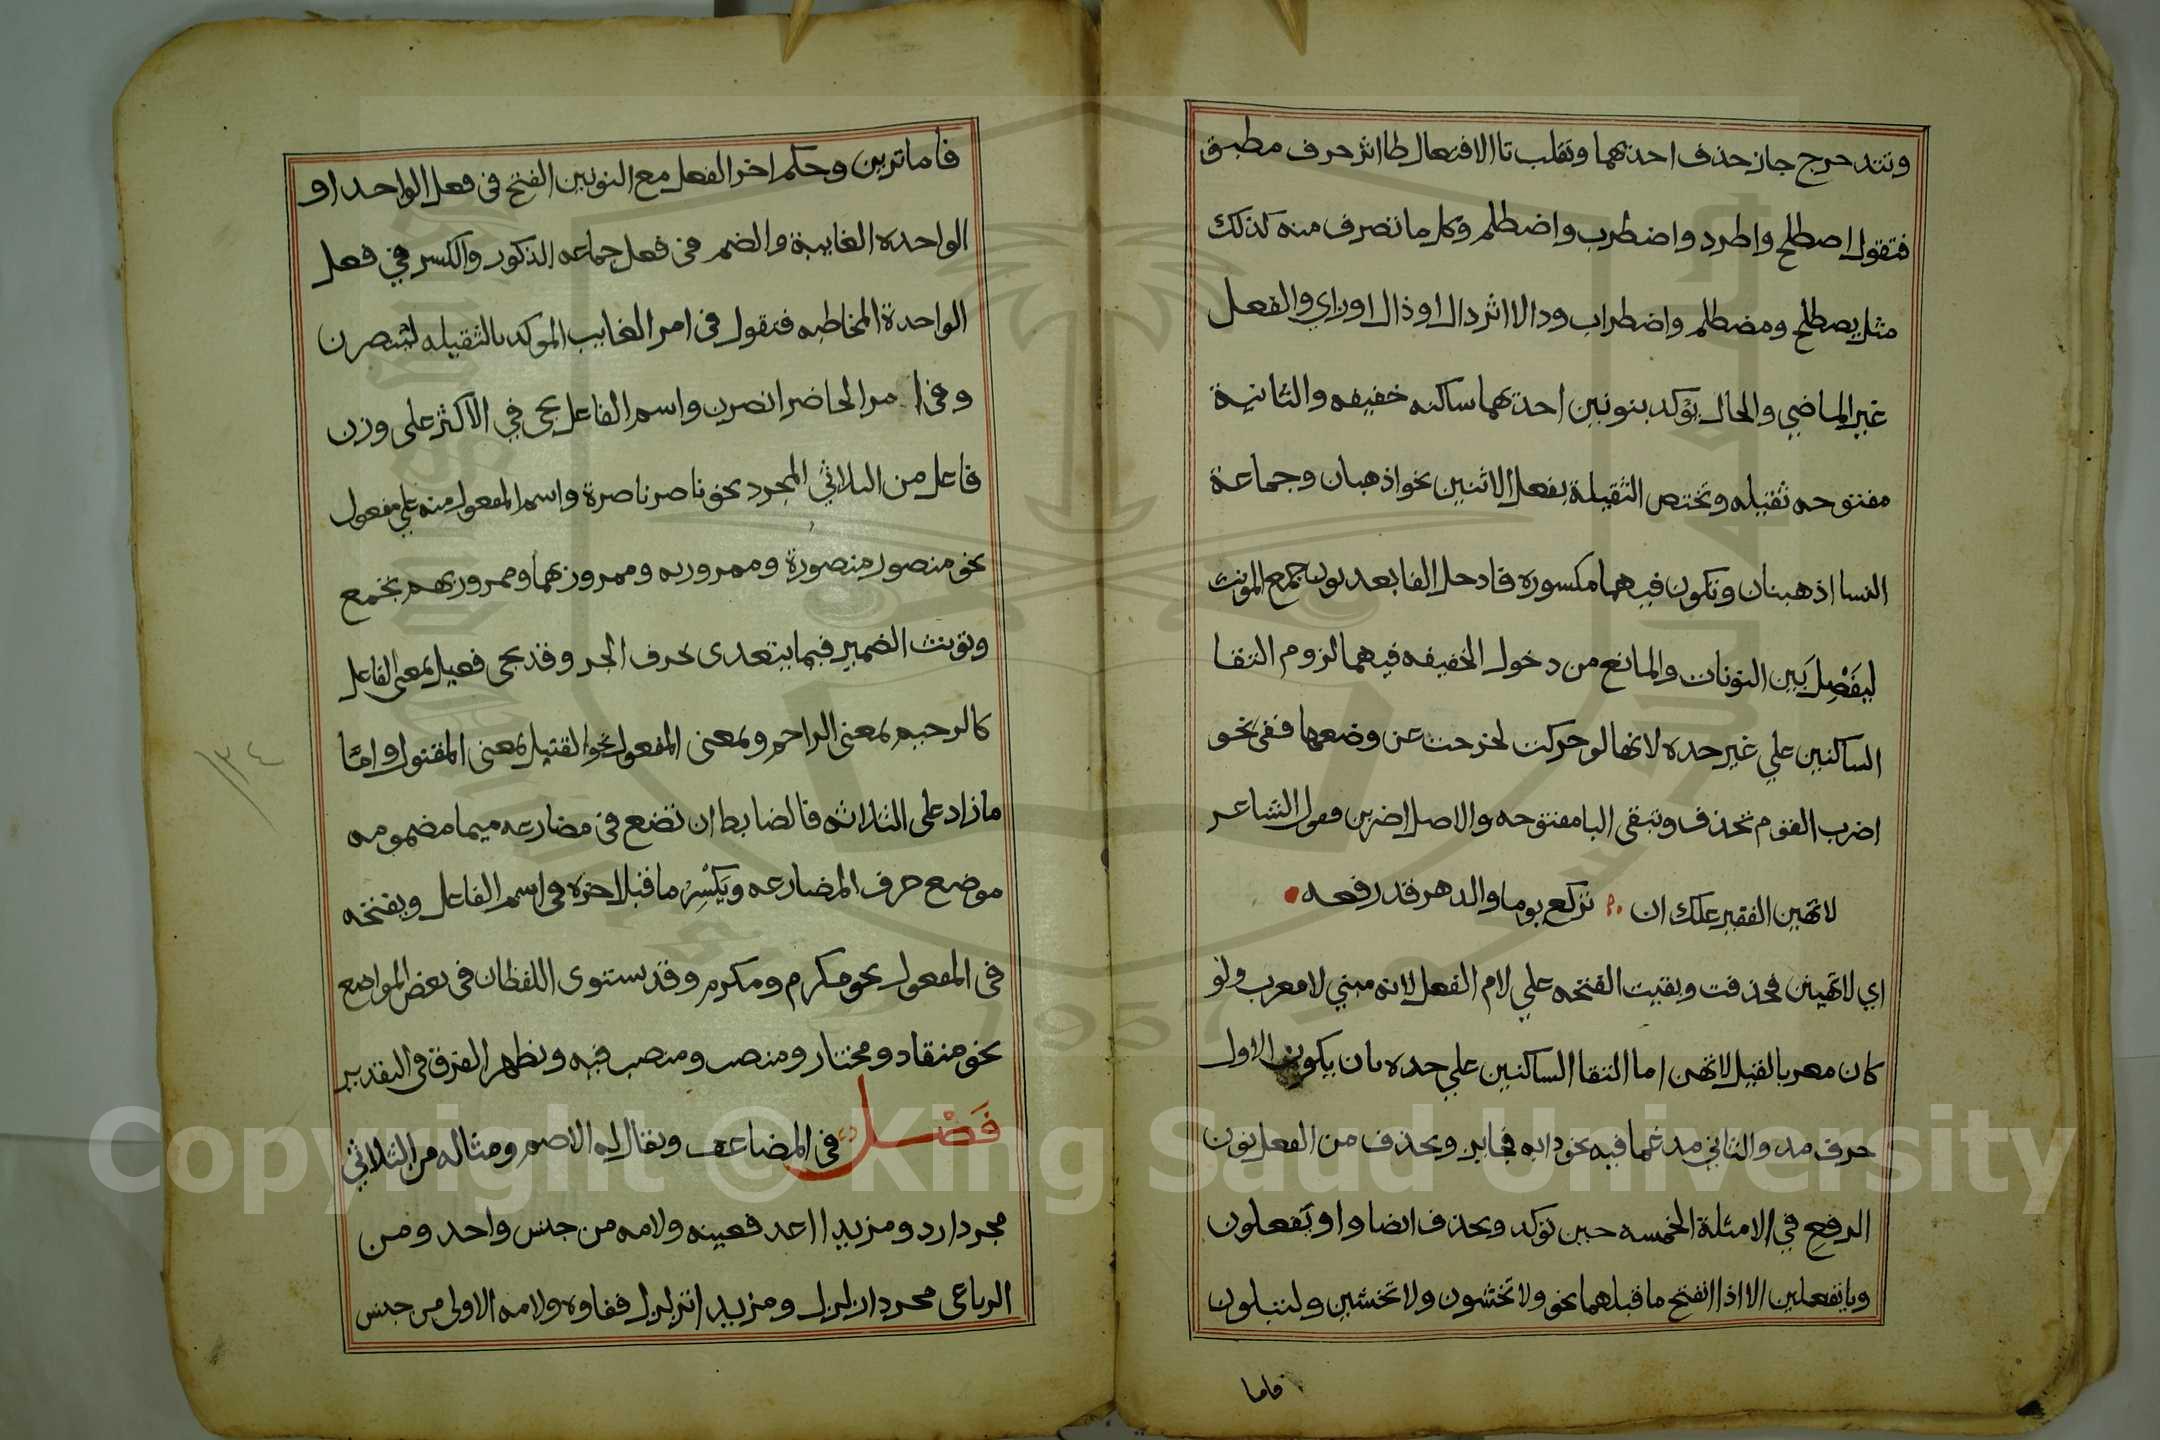 وتتدحرج جاز حذف احديهما وتقلب تا الافتعال طا اثر حرف مطبق
فتقول اصطلح واطرد واضطرب واضطلم وكل ما تصرف منه كذلك
مثل يصطلح ومضطلم واضطراب ودالا اثر دال او ذال او زاي والفعل
غير الماضي والحال يؤكد بنونين احديهما ساكنه خفيفه والثانية
مفتوحه ثقيله وتختص الثقيلة بفعل الاثنين نحو اذهبان وجماعة
النسا اذهبنان وتكون فيهما مكسوره فادخل الفا بعد نون جمع المونث
ليفصل بين النونات والمانع من دخول الخفيفه فيهما لزوم التقا
الساكنين علي غير حده لانها لو حركت لخرجت عن وضعها ففي نحو
اضرب القوم تحذف وتبقي البا مفتوحه والاصل اضربن وقول الشاعر
لا تهين الفقير علك ان تركع يوما والدهر قد رفعه
اي لا تهينن فحذفت وبقيت الفتحه علي لام الفعل لانه مبني لا معرب ولو
كان معربا لقيل لا تهن اما التقا الساكنين علي حده بان يكون الاول
حرف مد والثاني مدغما فيه نحو دابه فجايز ويحذف من الفعل نون
الرفع في الامثلة الخمسه حين تؤكد ويحذف ايضا واو يفعلون
ويا تفعلين الا اذا انفتح ما قبلهما نحو ولا تخشون ولا تخشين ولتبلون
فاما
فاما ترين وحكم اخر الفعل مع النونين الفتح في فعل الواحد او
الواحده الغايبة والضم في فعل جماعه الذكور والكسر في فعل
الواحدة المخاطبه فتقول في امر الغايب الموكد بالثقيله لينصرن
وفي امر الحاضر انصرن واسم الفاعل يجي في الاكثر علي وزن
فاعل من الثلاثي المجرد نحو ناصر ناصرة واسم المفعول منه علي مفعول
نحو منصور منصورة وممرور به وممرور بهما وممرور بهم بجمع
وتونث الضمير فيما يتعدى بحرف الجر وقد يجي فعيل بمعنى الفاعل
كالرحيم بمعنى الراحم وبمعنى المفعول نحو القتيل بمعنى المقتول واما
ما زاد علي الثلاثه فالضابط ان تضع في مضارعه ميما مضمومه
موضع حرف المضارعه ويكسر ما قبل اخره في اسم الفاعل ويفتحه
في المفعول نحو مكرم ومكرم وقد يستوى اللفظان في بعض المواضع
نحو منقاد ومختار ومنصب ومنصب فيه ويظهر الفرق في التقدير
فصل في المضاعف ويقال له الاصم ومثاله من الثلاثي
مجردا رد ومزيدا اعد فعينه ولامه من جنس واحد ومن
الرباعي مجردا زلزل ومزيدا تزلزل ففاوه ولامه الاولى من جنس
١٣٤
Copyright © King Saud University
1957